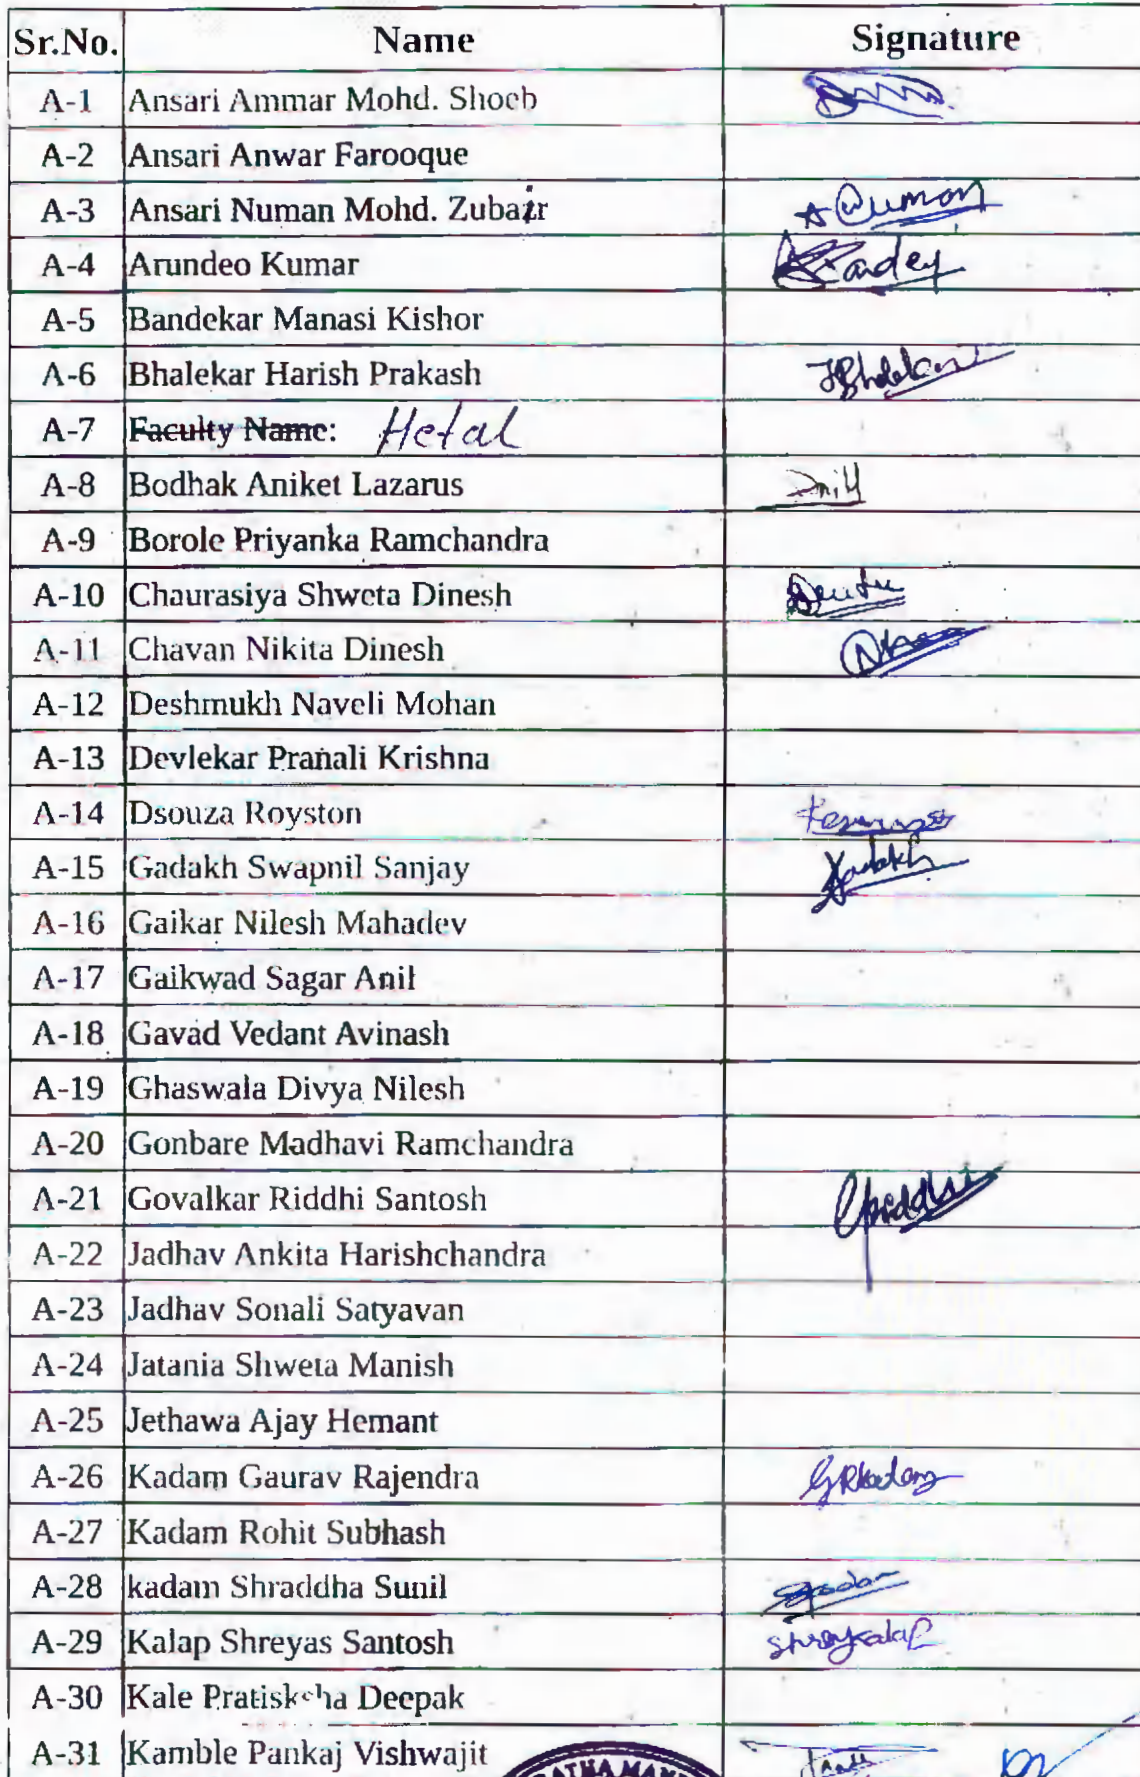 Sr.No. Name Signature
A-1 Ansari Ammar Mohd. Shoeb
A-2 Ansari Anwar Farooque
A-3 Ansari Numan Mohd. Zubair
A-4 Arundeo Kumar
A-5 Bandekar Manasi Kishor
A-6 Bhalekar Harish Prakash
A-7 Faculty Name: Hetal
A-8 Bodhak Aniket Lazarus
A-9 Borole Priyanka Ramchandra
A-10 Chaurasiya Shweta Dinesh
A-11 Chavan Nikita Dinesh
A-12 Deshmukh Naveli Mohan
A-13 Devlekar Pranali Krishna
A-14 Dsouza Royston
A-15 Gadakh Swapnil Sanjay Gadakh
A-16 Gaikar Nilesh Mahadev
A-17 Gaikwad Sagar Anil
A-18 Gavad Vedant Avinash
A-19 Ghaswala Divya Nilesh
A-20 Gonbare Madhavi Ramchandra
A-21 Govalkar Riddhi Santosh
A-22 Jadhav Ankita Harishchandra
A-23 Jadhav Sonali Satyavan
A-24 Jatania Shweta Manish
A-25 Jethawa Ajay Hemant
A-26 Kadam Gaurav Rajendra GRKadam
A-27 Kadam Rohit Subhash
A-28 kadam Shraddha Sunil
A-29 Kalap Shreyas Santosh
A-30 Kale Pratiskcha Deepak
A-31 Kamble Pankaj Vishwajit